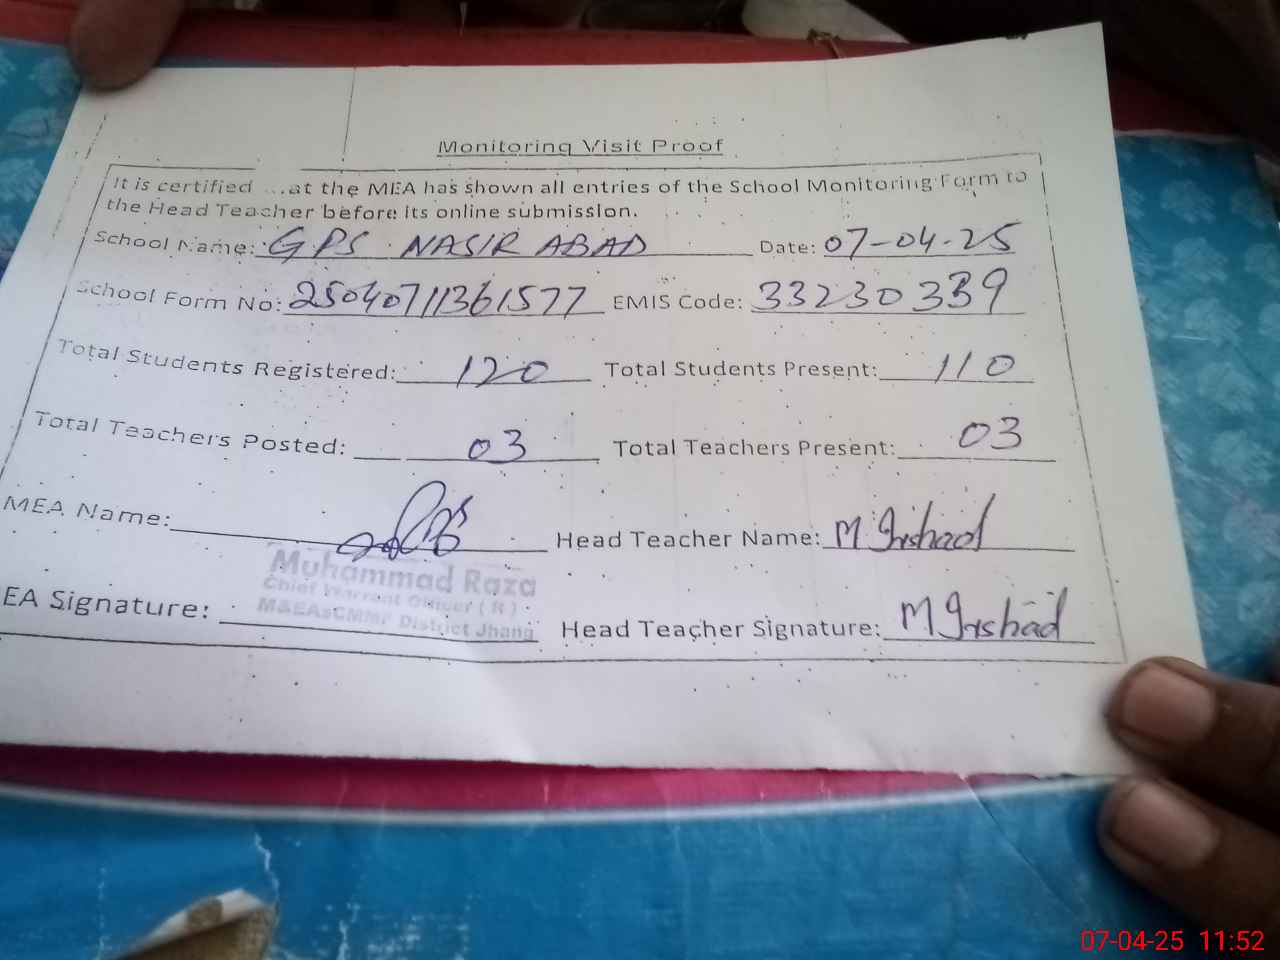 Monitoring Visit Proof
It is certified ...at the MEA has shown all entries of the School Monitoring Form to
the Head Teacher before its online submission.
School Name: GPS NASIR ABAD Date: 07-04-25
School Form No: 25040711361577 EMIS Code: 33230339
Total Students Registered: 120 Total Students Present: 110
Total Teachers Posted: 03 Total Teachers Present: 03
MEA Name: Head Teacher Name: M Irshad
Muhammad Raza
Chief Warrant Officer ( R )
District Jhang
EA Signature: Head Teacher Signature: M Irshad
07-04-25 11:52